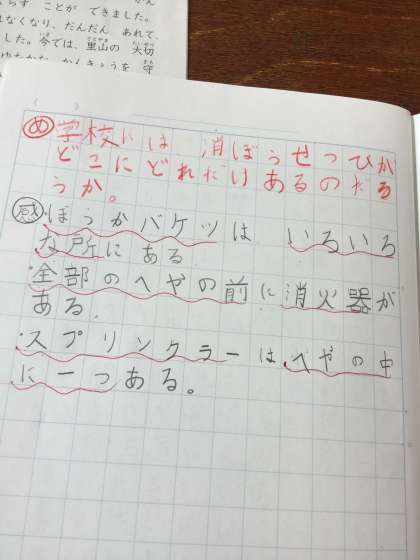 らす ことが できました。
れなくなり、だんだん あれて、
した。今では、里山の 大切
ゆたかな かんきょうを 守
( )
め 学校には 消ぼうせつびが
どこにどれだけあるのだろ
うか。
感 ・ぼうかバケツは いろいろ
な所にある
・全部のへやの前に消火器が
ある.
・スプリンクラーはへやの中
に一つある。